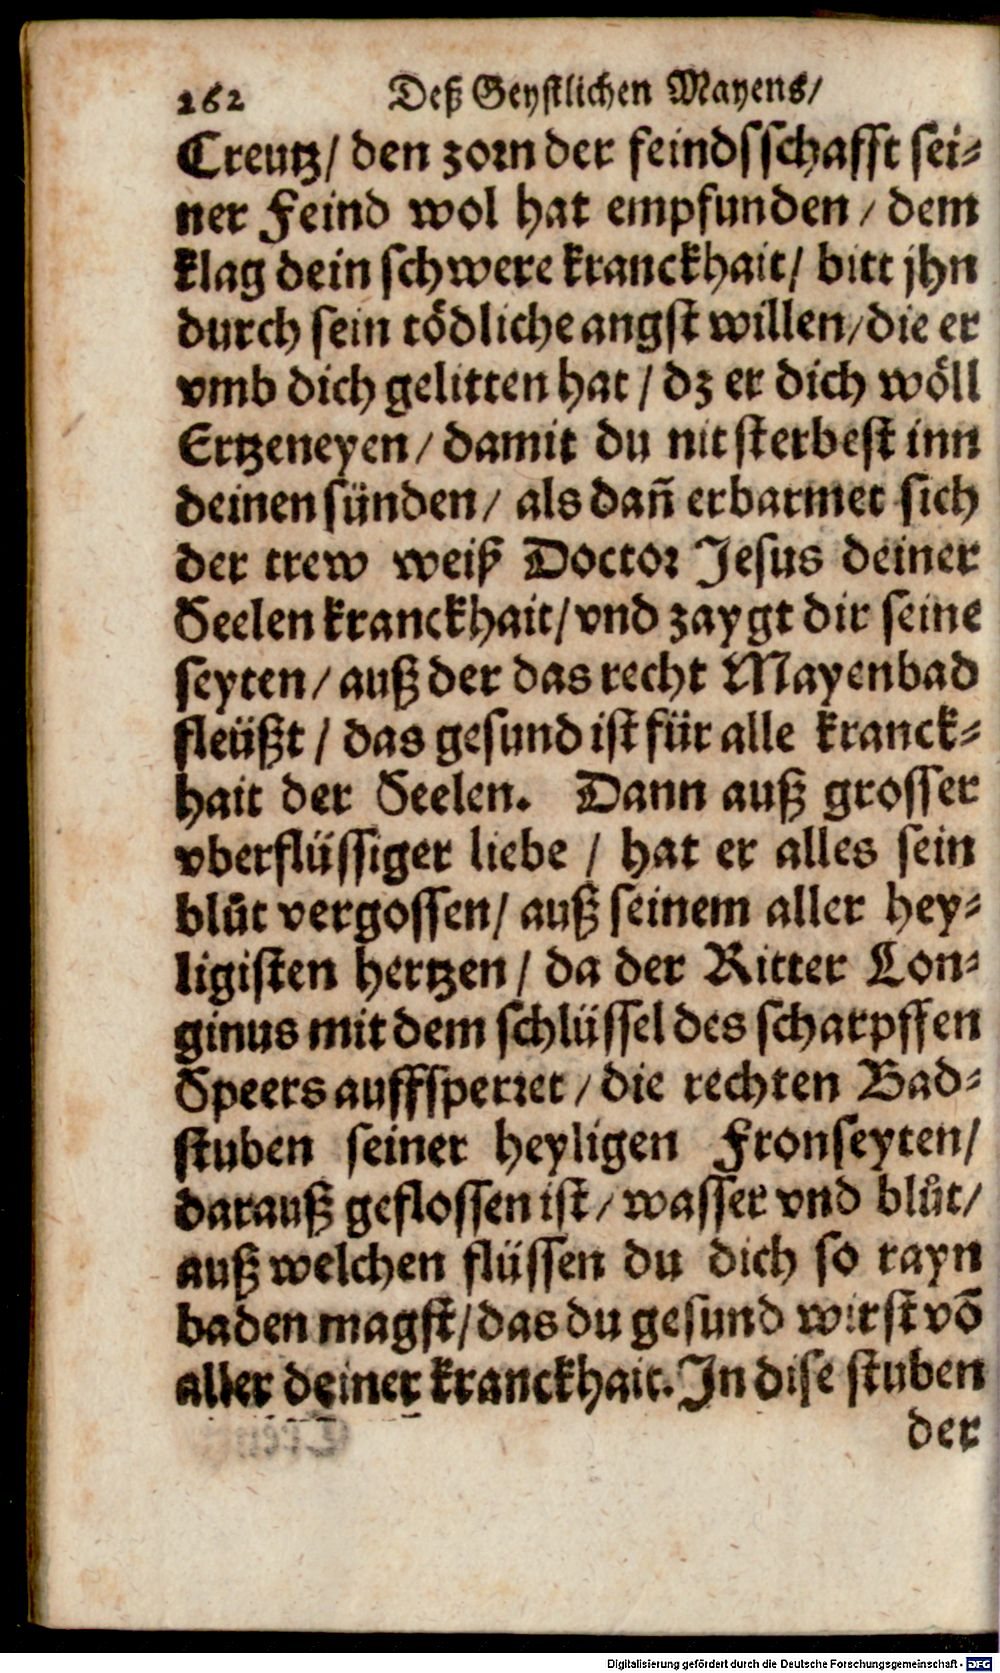 262 Deß Geystlichen Mayens/
Creutz/ den zorn der feindsschafft sei-
ner Feind wol hat empfunden / dem
klag dein schwere kranckhait/ bitt jhn
durch sein tödliche angst willen/die er
vmb dich gelitten hat / dz er dich wöll
Ertzeneyen/ damit du nit sterbest inn
deinen sünden/ als dañ erbarmet sich
der trew weiß Doctor Jesus deiner
Seelen kranckhait/vnd zaygt dir seine
seyten/ auß der das recht Mayenbad
fleüßt / das gesund ist für alle kranck-
hait der Seelen. Dann auß grosser
vberflüssiger liebe / hat er alles sein
blůt vergossen/ auß seinem aller hey-
ligisten hertzen/ da der Ritter Lon-
ginus mit dem schlüssel des scharpffen
Speers auffsperret/ die rechten Bad-
stuben seiner heyligen Fronseyten/
darauß geflossen ist/ wasser vnd blůt/
auß welchen flüssen du dich so rayn
baden magst/das du gesund wirst võ
aller deiner kranckhait. In dise stuben
der
Digitalisierung gefördert durch die Deutsche Forschungsgemeinschaft - DFG